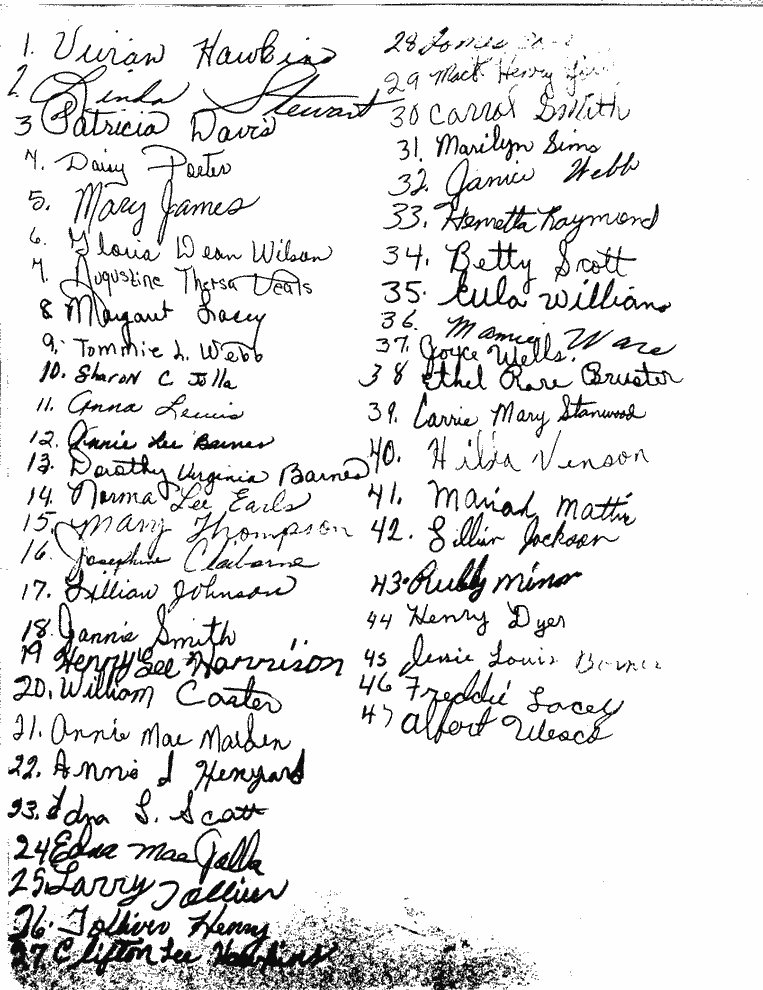 1. Vivian Hawkins
2. Linda Stewart
3 Patricia Davis
4. Daisy Porter
5. Mary James
6. Gloria Dean Wilson
7. Augustine Thersa Veals
8 Margaret Lacey
9. Tommie L. Webb
10. Sharon C Jolla
11. Anna Lewis
12. Annie Lee Barnes
13. Dorothy Virginia Barnes
14. Norma Lee Earls
15. Mary Thompson
16. Josephine Claiborne
17. Lillian Johnson
18. Jannie Smith
19 Henry Lee Harrison
20. William Carter
21. Annie Mae Maiden
22. Annie L Henyard
23. Edna L. Scott
24 Edna Mae Jolla
25. Larry Tolliver
26. Tolliver Henry
27 Clifton Lee Hawkins
28 James
29 Mack Henry
30 Carrol Smith
31. Marilyn Sims
32. Janice Webb
33. Henretta Raymond
34. Betty Scott
35. Eula Williams
36. Mamie Ware
37. Joyce Wells.
38 Ethel Rose Bruster
39. Carrie Mary Stanwood
40. Hilda Venson
41. Mariah Mattie
42. Lillian Jackson
43. Ruby Minor
44 Henry Dyer
45 Jessie Louis Barnes
46 Freddie Lacey
47 Albert Wesco